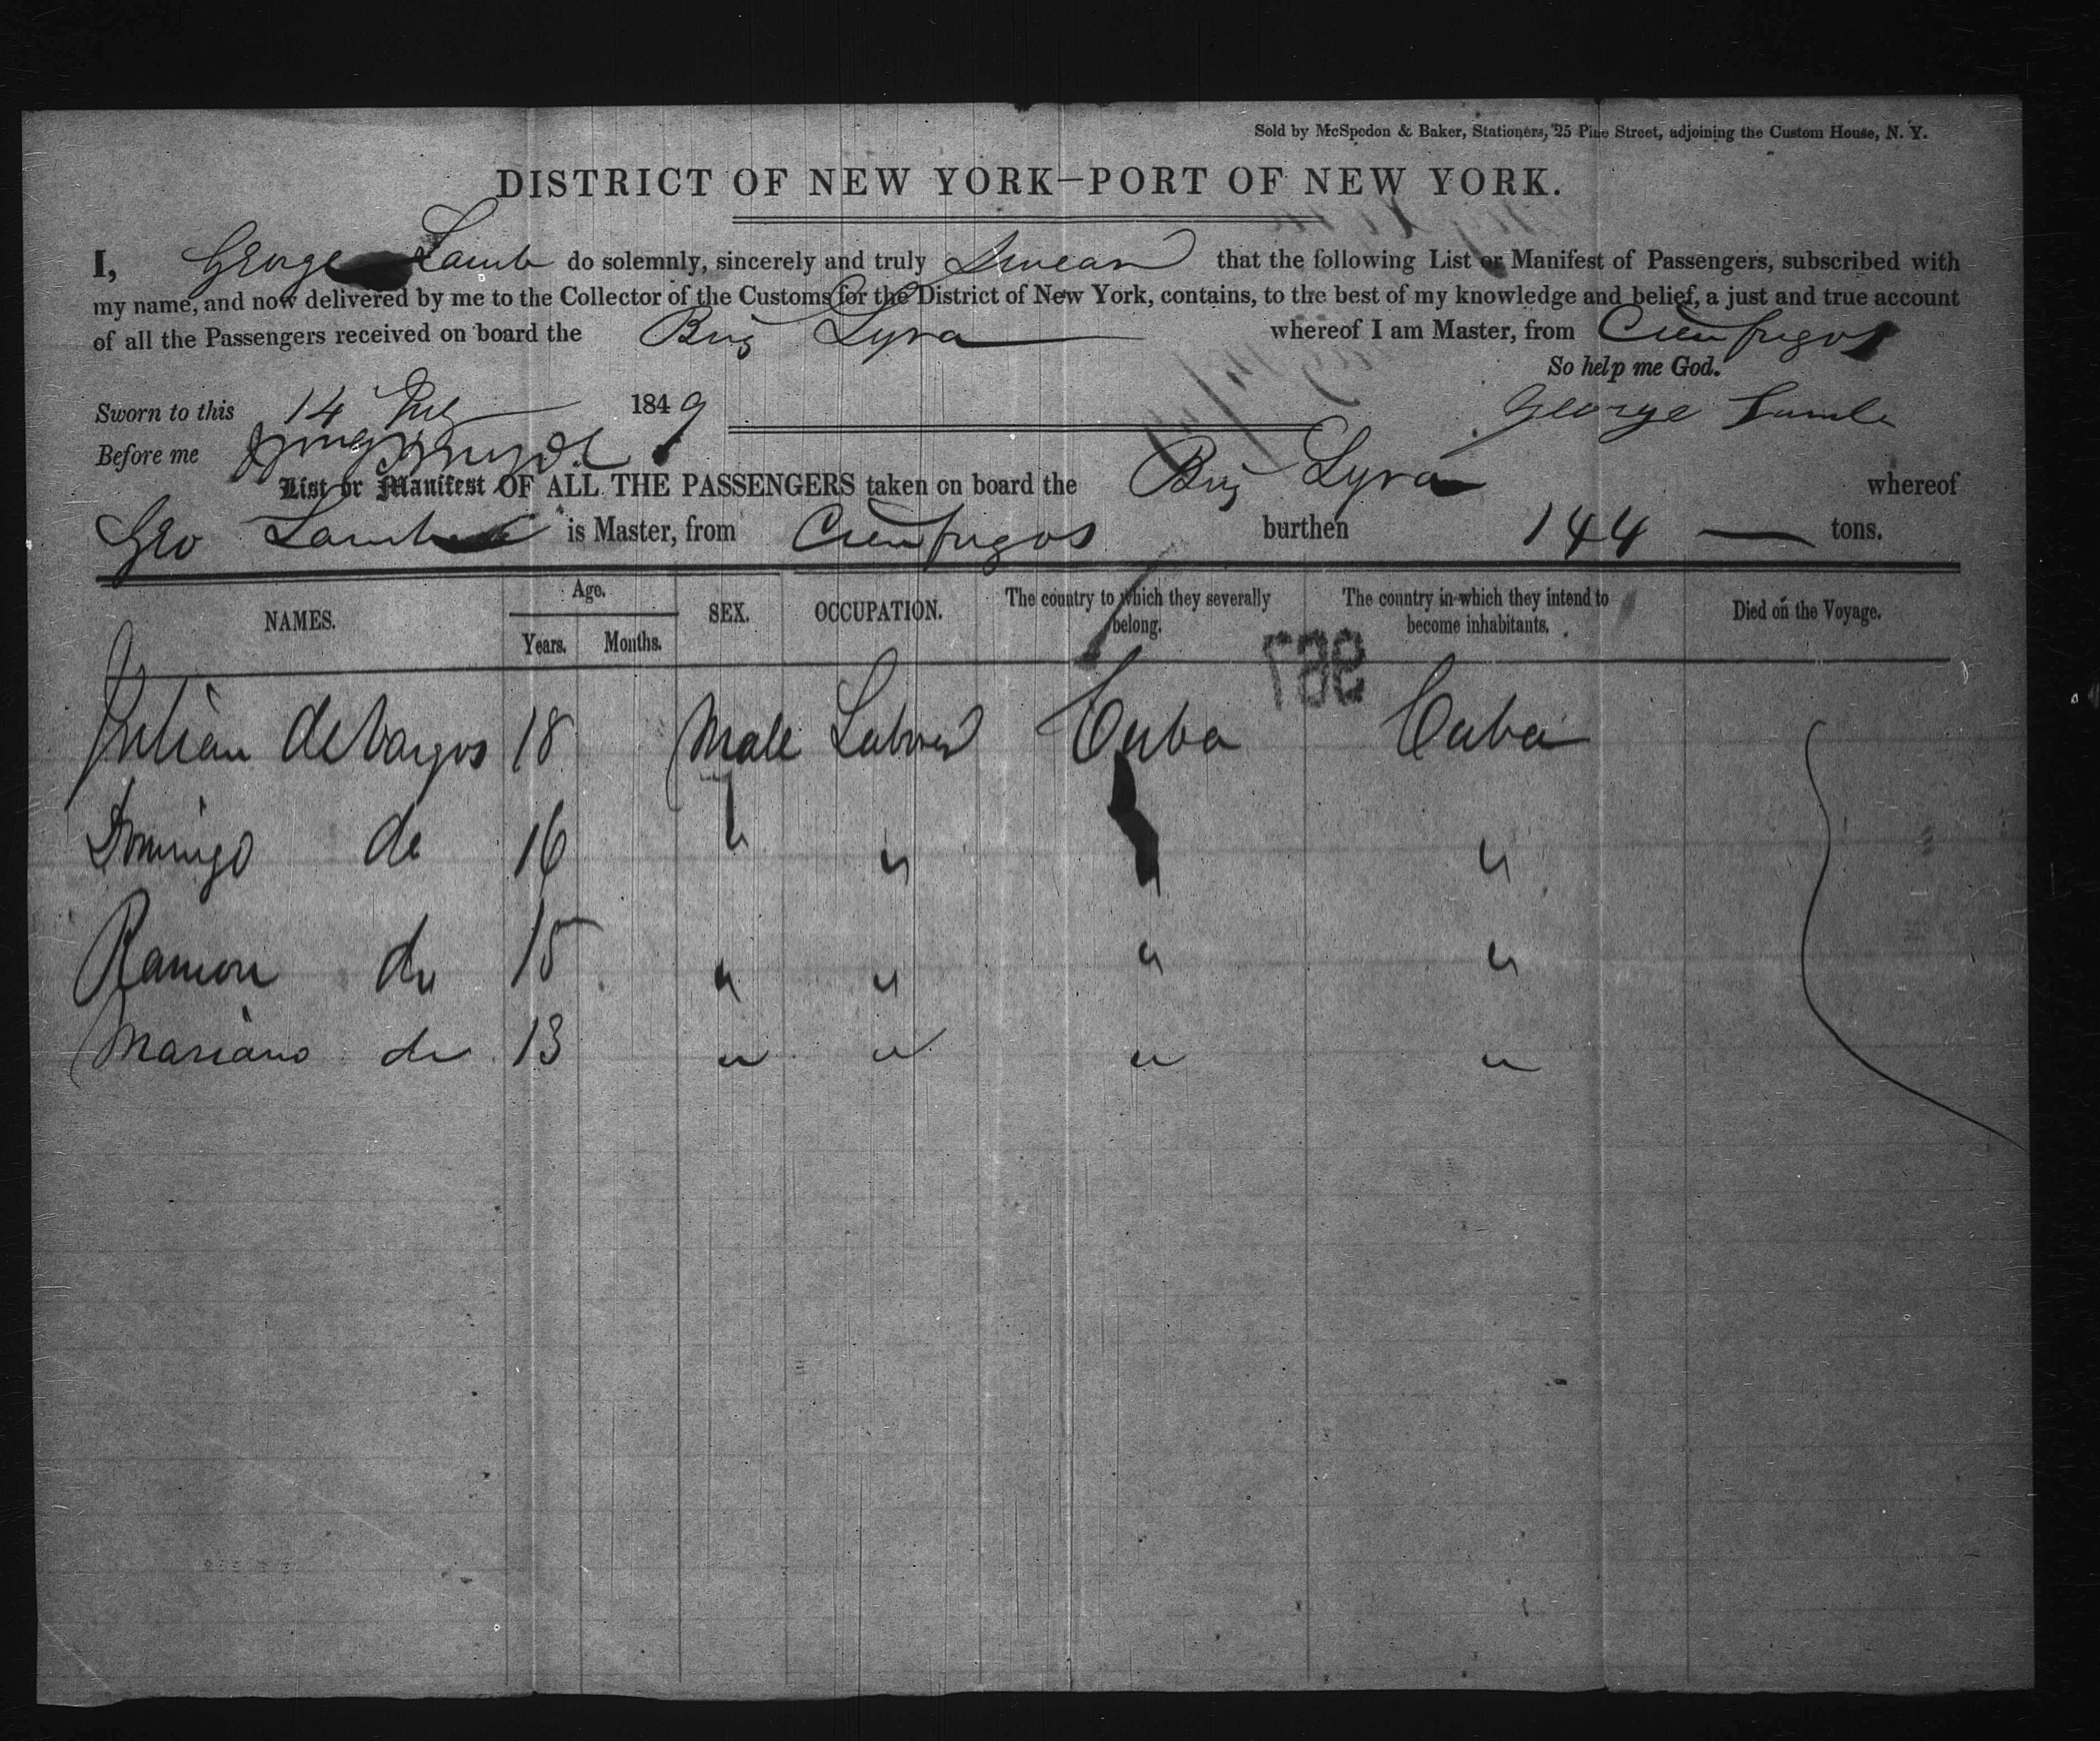 Sold by McSpedon & Baker, Stationers, 25 Pine Street, adjoining the Custom House, N. Y.
DISTRICT OF NEW YORK—PORT OF NEW YORK.
I, George Lamb do solemnly, sincerely and truly Swear that the following List or Manifest of Passengers, subscribed with
my name, and now delivered by me to the Collector of the Customs for the District of New York, contains, to the best of my knowledge and belief, a just and true account
of all the Passengers received on board the Brig Lyra whereof I am Master, from Cienfugos
So help me God.
Sworn to this 14 1849 George Lamb
Before me
List or Manifest OF ALL THE PASSENGERS taken on board the Brig Lyra whereof
Geo Lamb is Master, from Cienfugos burthen 144 — tons.
NAMES. Age. Years. Months. SEX. OCCUPATION. The country to which they severally belong. The country in which they intend to become inhabitants. Died on the Voyage.
Julian de Vargos 18 Male Laborer Cuba Cuba
Domingo do 16 " " " "
Ramon do 15 " " " "
Mariano do 13 " " " "